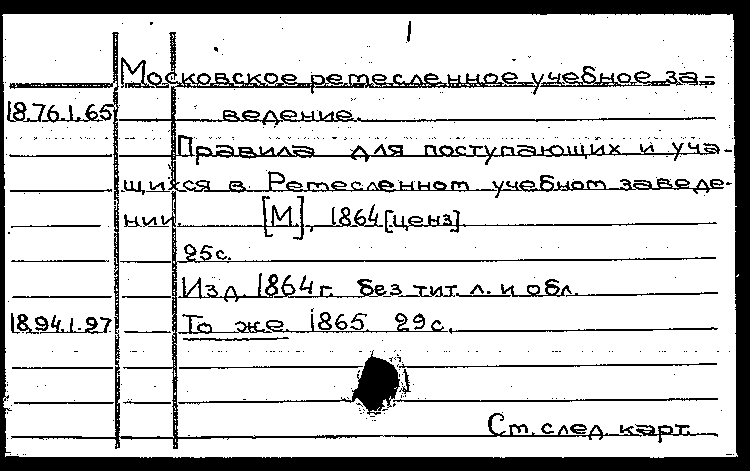 1
Московское ремесленное учебное за-
18.76.1.65 ведение.
Правила для поступающих и уча-
щихся в Ремесленном учебном заведе-
нии. [М.], 1864 [ценз].
25 с.
Изд. 1864 г. без тит. л. и обл.
18.94.1.97 То же. 1865. 29 с.
См. след. карт.